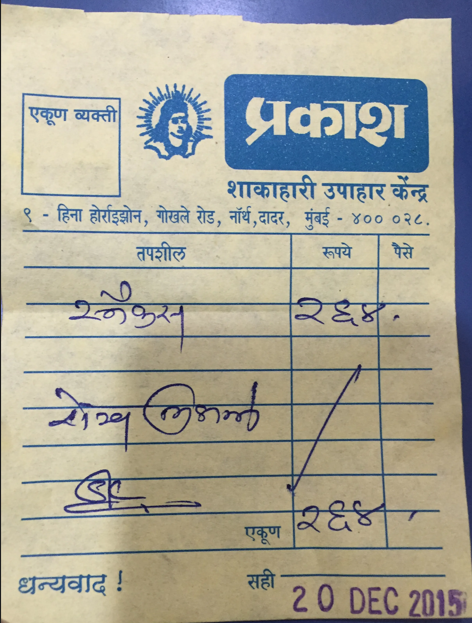 एकूण व्यक्ती
प्रकाश
शाकाहारी उपाहार केंन्द्र
९ - हिना होर्राइझोन, गोखले रोड, नॉर्थ,दादर, मुंबई - ४०० ०२८.
तपशील रूपये पैसे
स्नॅकस २६४.
रोख मिळाले
एकूण २६४.
धन्यवाद ! सही
20 DEC 2015